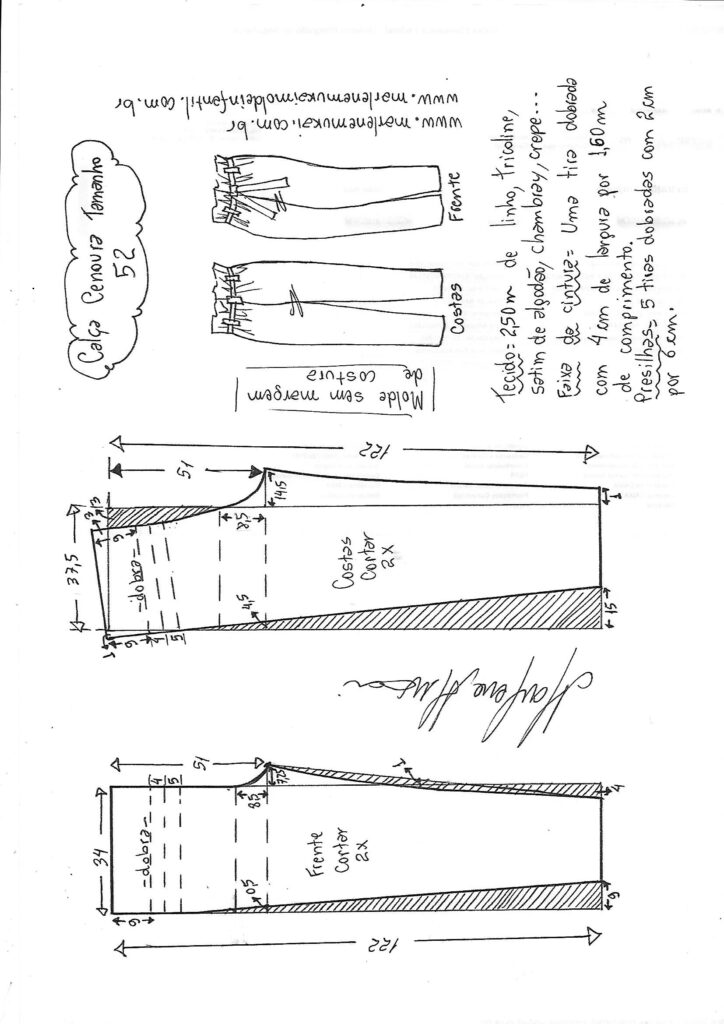 Calça Cenoura Tamanho
52
www.marlenemukai.com.br
www.marlenemukaimoldeinfantil.com.br
Frente
Costas
Molde sem margem
de costura
Tecido = 2,50m de linho, tricoline,
setim de algodão, chambray, crepe...
Faixa da cintura = Uma tira dobrada
com 4cm de largura por 1,60m
de comprimento.
Presilhas = 5 tiras dobradas com 2cm
por 6cm.
122
51
3
3
37,5
9
-dobra-
14,5
8,5
Costas
Cortar
2x
4,5
1
1
9
4
5
15
Marlene Mukai
51
4
5
34
-dobra-
7,25
8,5
1
4
Frente
Cortar
2x
0,5
9
9
122